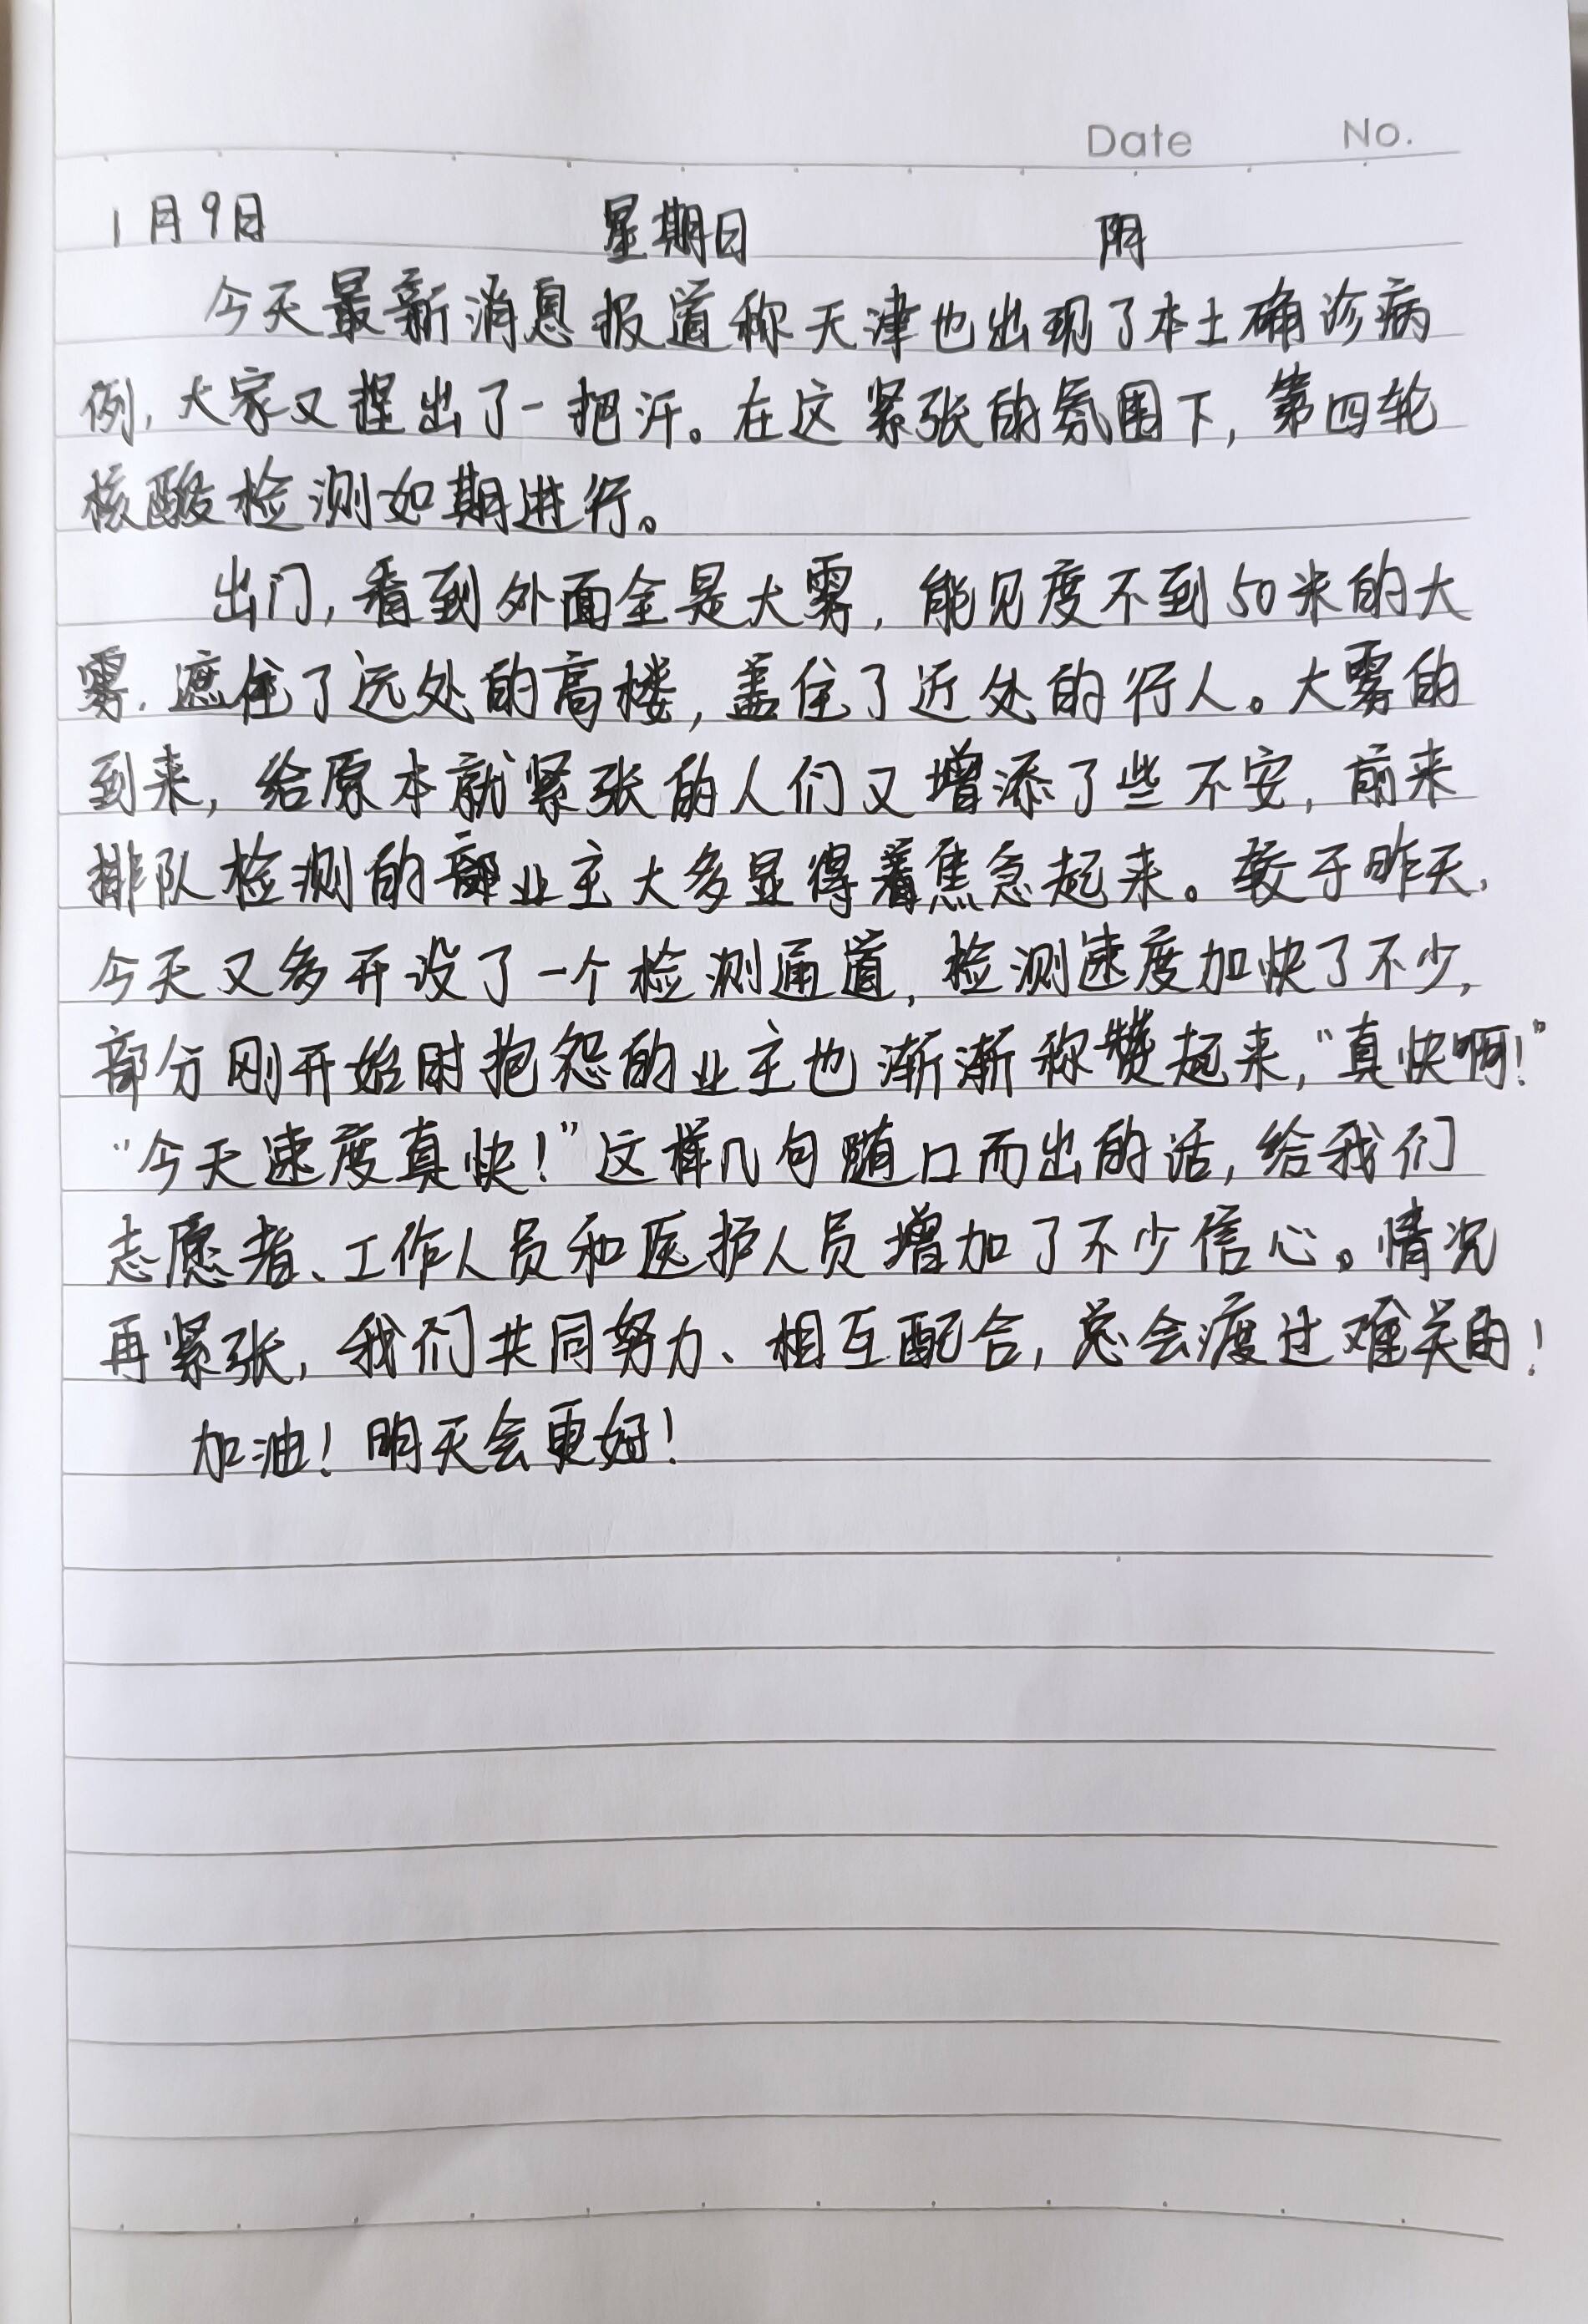 Date No.
1月9日 星期日 阴
今天最新消息报道称天津也出现了本土确诊病
例,大家又捏出了一把汗。在这紧张的氛围下,第四轮
核酸检测如期进行。
出门,看到外面全是大雾,能见度不到50米的大
雾.遮住了远处的高楼,盖住了近处的行人。大雾的
到来,给原本就紧张的人们又增添了些不安,前来
排队检测的部业主大多显得着焦急起来。较于昨天,
今天又多开设了一个检测通道,检测速度加快了不少,
部分刚开始时抱怨的业主也渐渐称赞起来,“真快啊!”
“今天速度真快!”这样几句随口而出的话,给我们
志愿者、工作人员和医护人员增加了不少信心。情况
再紧张,我们共同努力、相互配合,总会渡过难关的!
加油!明天会更好!